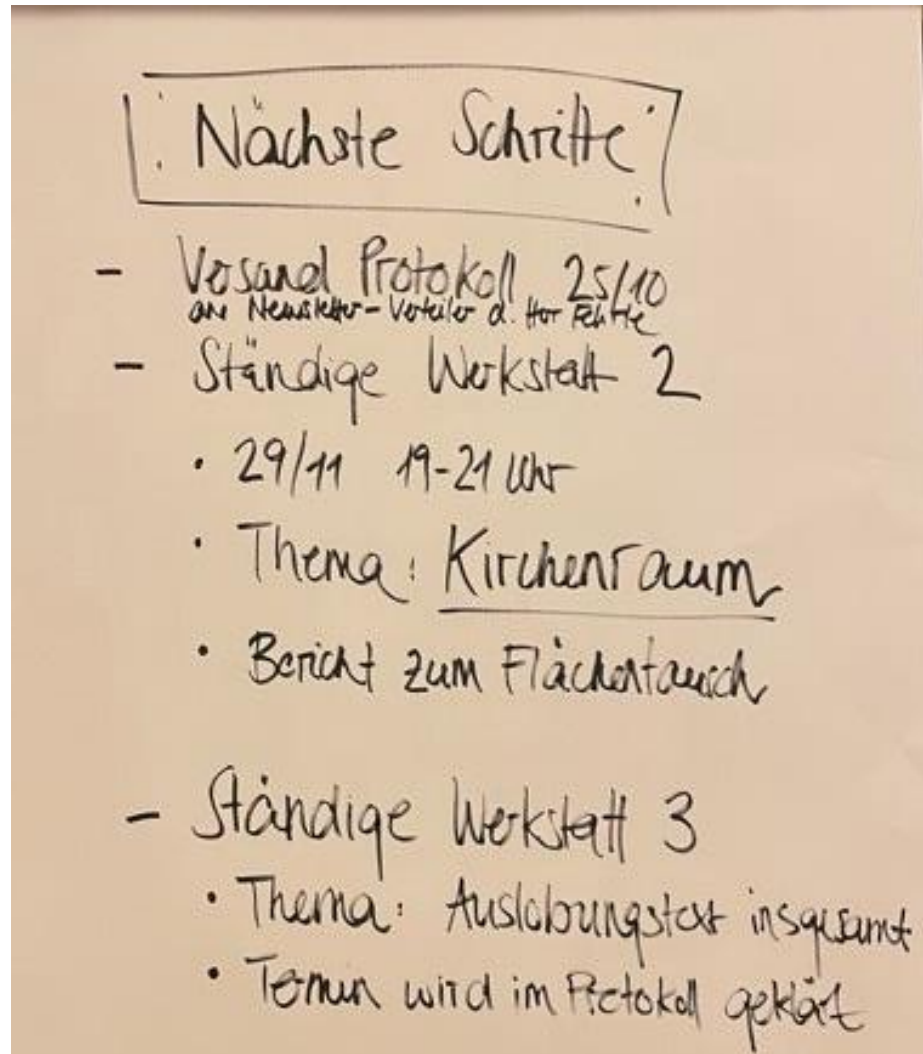 Nächste Schritte
- Versand Protokoll 25/10
an Newsletter-Verteiler d.
- Ständige Werkstatt 2
• 29/11 19-21 Uhr
• Thema: Kirchenraum
• Bericht zum Flächentausch
- Ständige Werkstatt 3
• Thema: Auslobungstext insgesamt
• Termin wird im Protokoll geklärt